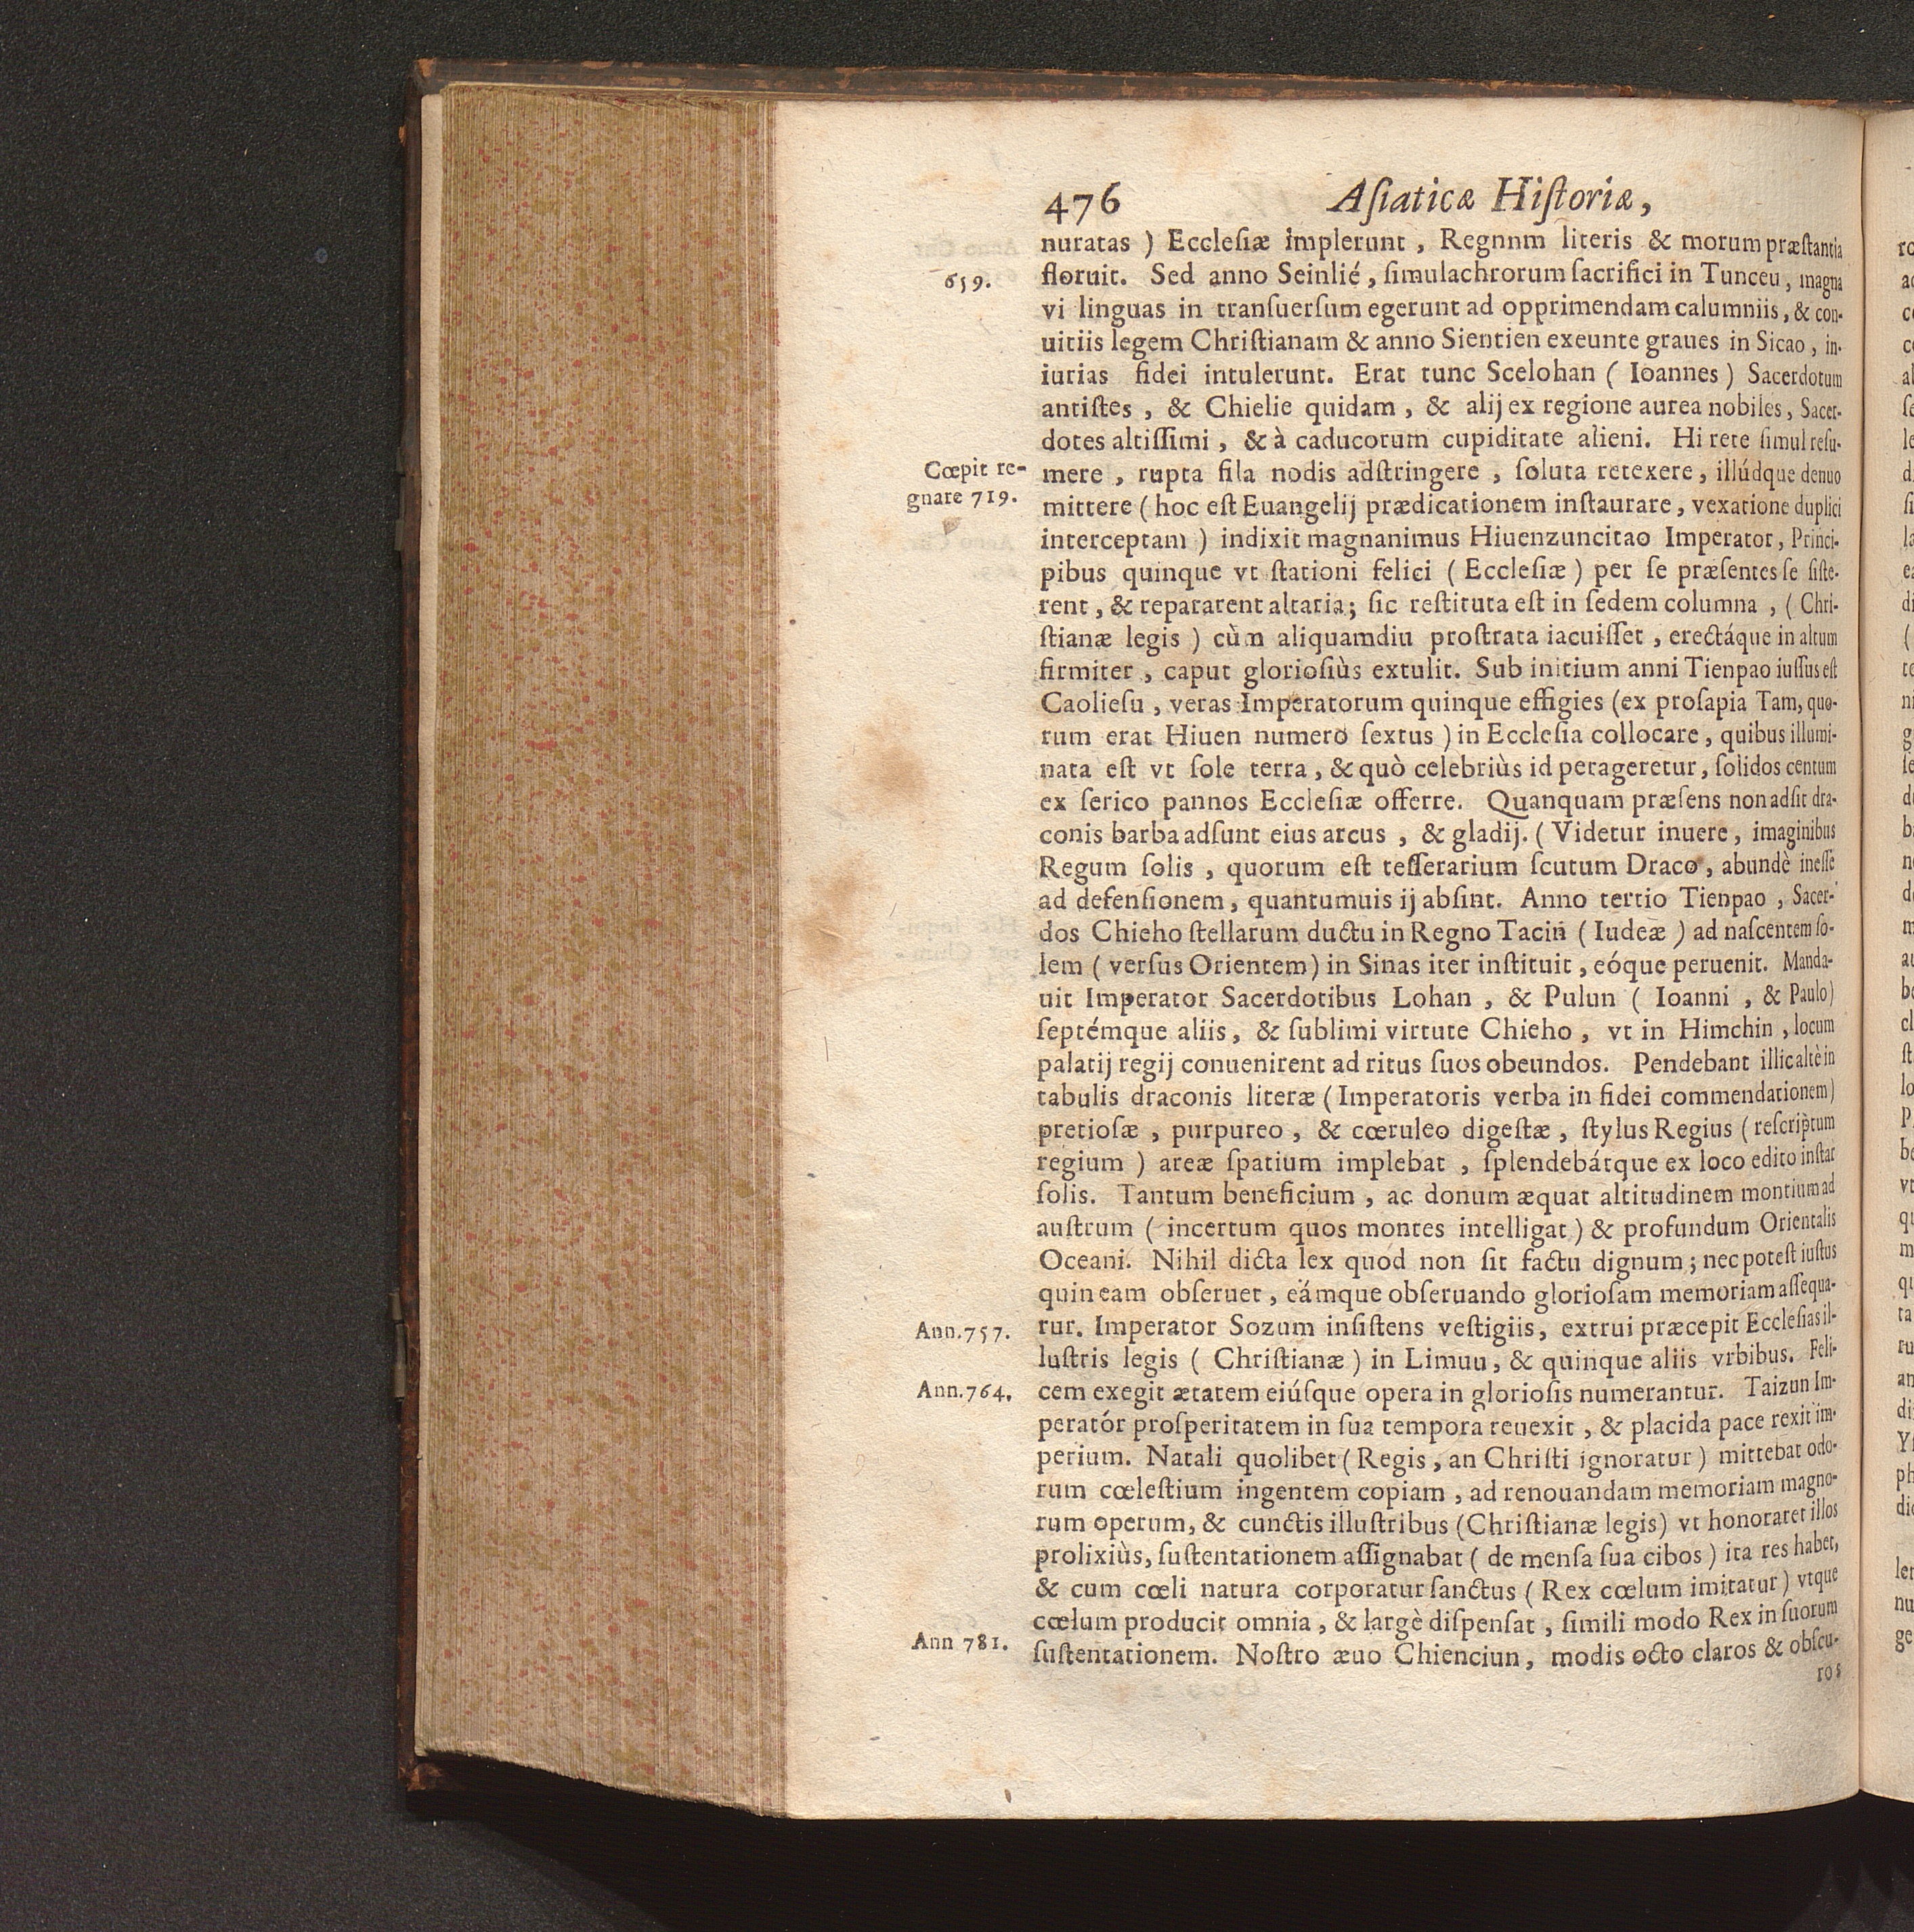 476 Aſiaticæ Hiſtoriæ,
nuratas ) Eccleſiæ implerunt , Regnnm literis & morum præſtantia
659.
floruit. Sed anno Seinlié , ſimulachrorum ſacrifici in Tunceu , magna
vi linguas in tranſuerſum egerunt ad opprimendam calumniis, & con-
uitiis legem Chriſtianam & anno Sientien exeunte graues in Sicao , in-
iurias fidei intulerunt. Erat tunc Scelohan ( Ioannes ) Sacerdotum
antiſtes , & Chielie quidam , & alij ex regione aurea nobiles , Sacer-
dotes altiſſimi , & à caducorum cupiditate alieni. Hi rete ſimul reſu-
Cœpit re-
gnare 719.
mere , rupta fila nodis adſtringere , ſoluta retexere , illúdque denuo
mittere ( hoc eſt Euangelij prædicationem inſtaurare , vexatione duplici
interceptam ) indixit magnanimus Hiuenzuncitao Imperator , Princi-
pibus quinque vt ſtationi felici ( Eccleſiæ ) per ſe præſentes ſe ſiſte-
rent , & repararent altaria; ſic reſtituta eſt in ſedem columna , ( Chri-
ſtianæ legis ) cùm aliquamdiu proſtrata iacuiſſet , erectáque in altum
firmiter , caput glorioſiùs extulit. Sub initium anni Tienpao iuſſus eſt
Caolieſu , veras Imperatorum quinque effigies (ex proſapia Tam, quo-
rum erat Hiuen numero ſextus ) in Eccleſia collocare , quibus illumi-
nata eſt vt ſole terra , & quò celebriùs id perageretur , ſolidos centum
ex ſerico pannos Eccleſiæ offerre. Quanquam præſens non adſit dra-
conis barba adſunt eius arcus , & gladij. ( Videtur inuere , imaginibus
Regum ſolis , quorum eſt teſſerarium ſcutum Draco , abundè ineſſe
ad defenſionem , quantumuis ij abſint. Anno tertio Tienpao , Sacer-
dos Chieho ſtellarum ductu in Regno Tacin ( Iudeæ ) ad naſcentem ſo-
lem ( verſus Orientem ) in Sinas iter inſtituit , eóque peruenit. Manda-
uit Imperator Sacerdotibus Lohan , & Pulun ( Ioanni , & Paulo)
ſeptémque aliis , & ſublimi virtute Chieho , vt in Himchin , locum
palatij regij conuenirent ad ritus ſuos obeundos. Pendebant illic altè in
tabulis draconis literæ ( Imperatoris verba in fidei commendationem)
pretioſæ , purpureo , & cœruleo digeſtæ , ſtylus Regius ( reſcriptum
regium ) areæ ſpatium implebat , ſplendebátque ex loco edito inſtar
ſolis. Tantum beneficium , ac donum æquat altitudinem montium ad
auſtrum ( incertum quos montes intelligat ) & profundum Orientalis
Oceani. Nihil dicta lex quod non ſit factu dignum ; nec poteſt iuſtus
quin eam obſeruet , eámque obſeruando glorioſam memoriam aſſequa-
Ann.757.
rur. Imperator Sozum inſiſtens veſtigiis, extrui præcepit Eccleſias il-
luſtris legis ( Chriſtianæ ) in Limuu , & quinque aliis vrbibus. Feli-
Ann.764.
cem exegit ætatem eiúſque opera in glorioſis numerantur. Taizun Im-
peratór proſperitatem in ſua tempora reuexit , & placida pace rexit im-
perium. Natali quolibet ( Regis , an Chriſti ignoratur ) mittebat odo-
rum cœleſtium ingentem copiam , ad renouandam memoriam magno-
rum operum, & cunctis illuſtribus (Chriſtianæ legis) vt honoraret illos
prolixiùs, ſuſtentationem aſſignabat ( de menſa ſua cibos ) ita res habet,
& cum cœli natura corporatur ſanctus ( Rex cœlum imitatur ) vtque
cœlum producit omnia , & largè diſpenſat , ſimili modo Rex in ſuorum
Ann 781.
ſuſtentationem. Noſtro æuo Chienciun , modis octo claros & obſcu-
ros